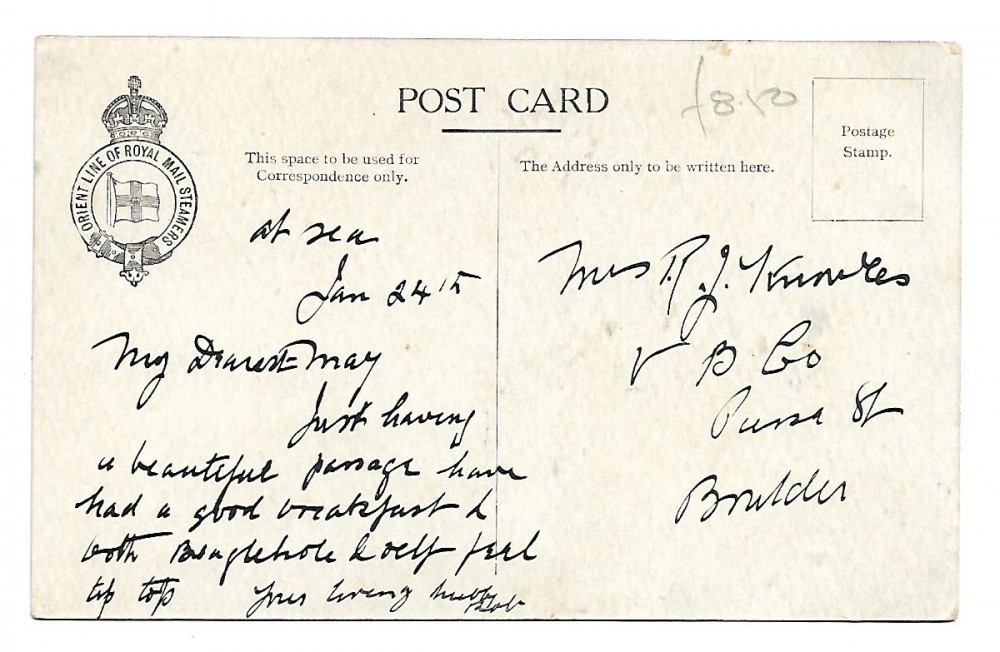 POST CARD
£8.50
ORIENT LINE OF ROYAL MAIL STEAMERS
This space to be used for
Correspondence only.
The Address only to be written here.
Postage
Stamp.
at sea
Jan 24th
My Dearest May
Just having
a beautiful passage have
had a good breakfast &
both Beaglehole & self feel
tip top Your loving hubby
Mrs R. J. Knowles
V B Co
St
Boulder